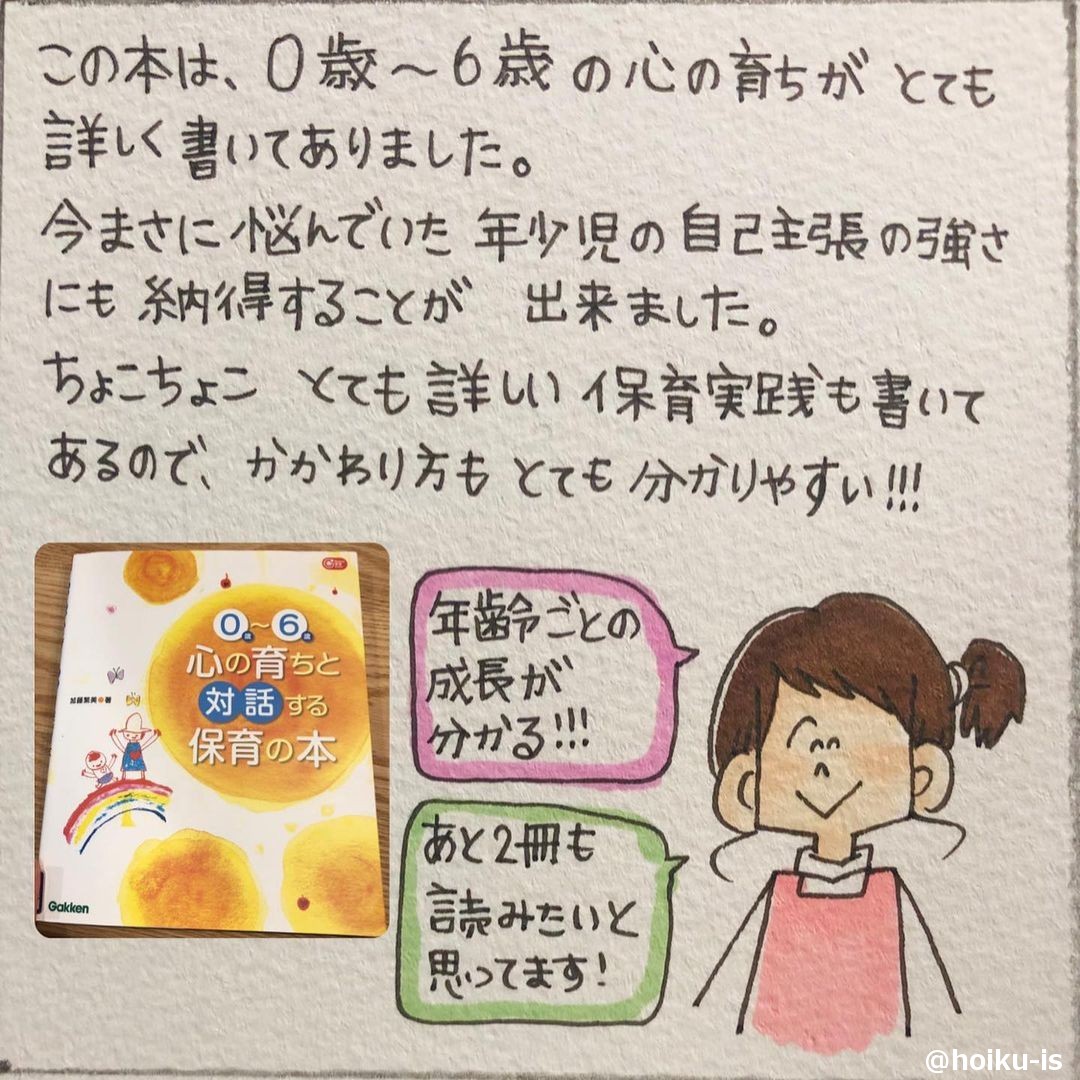 この本は、0歳〜6歳の心の育ちが とても
詳しく書いてありました。
今まさに悩んでいた 年少児の自己主張の強さ
にも 納得することが 出来ました。
ちょこちょこ とても詳しい保育実践も書いて
あるので、かかわり方も とても分かりやすい!!!
0歳〜6歳
心の育ちと
対話する
保育の本
加藤繁美●著
Gakken
年齢ごとの
成長が
分かる!!!
あと2冊も
読みたいと
思ってます!
@hoiku-is